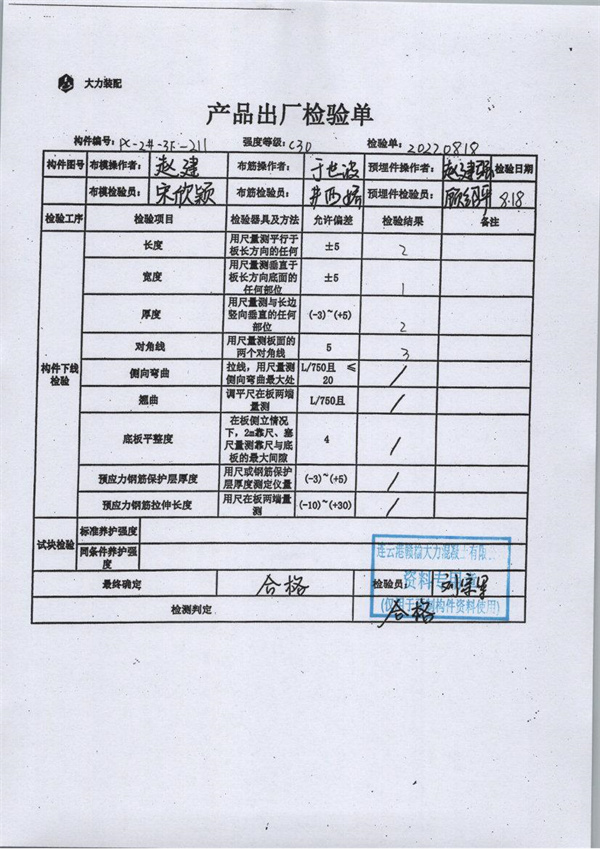 大力装配
产品出厂检验单
构件编号: PC-2#-3F-211 强度等级: C30 检验单: 20220818
构件图号 布模操作者: 赵建 布筋操作者: 于世波 预埋件操作者: 赵建 检验日期
布模检验员: 宋欣颖 布筋检验员: 预埋件检验员: 8.18
检验工序 检验项目 检验器具及方法 允许偏差 检验结果 备注
构件下线检验
长度 用尺量测平行于板长方向的任何 ±5 2
宽度 用尺量测垂直于板长方向底面的任何部位 ±5 1
厚度 用尺量测与长边竖向垂直的任何部位 (-3)~(+5) 2
对角线 用尺量测板面的两个对角线 5 3
侧向弯曲 拉线，用尺量测侧向弯曲最大处 L/750且 ≤20 /
翘曲 调平尺在板两端量测 L/750且 /
底板平整度 在板侧立情况下，2m靠尺、塞尺量测靠尺与底板的最大间隙 4 /
预应力钢筋保护层厚度 用尺或钢筋保护层厚度测定仪量 (-3)~(+5) /
预应力钢筋拉伸长度 用尺在板两端量测 (-10)~(+30) /
试块检验 标准养护强度
同条件养护强度
最终确定 合格 检验员:
检测判定 合格
连云港赣榆大力混凝土有限
资料专用
(仅用于 构件资料使用)